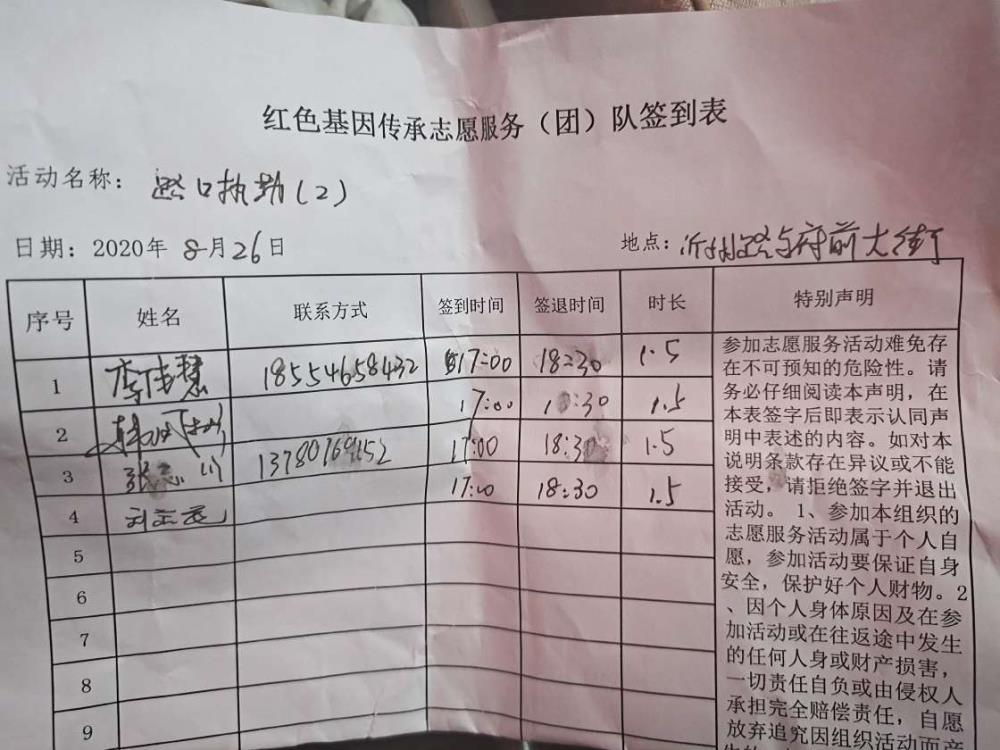 红色基因传承志愿服务（团）队签到表
活动名称：路口执勤(2)
日期：2020年8月26日 地点：沂州路与府前大街
序号 姓名 联系方式 签到时间 签退时间 时长 特别声明
1 李佳慧 18554658432 17:00 18:30 1.5
2 17:00 18:30 1.5
3 张志川 13780769152 17:00 18:30 1.5
4 17:00 18:30 1.5
5
6
7
8
9
参加志愿服务活动难免存
在不可预知的危险性。请
务必仔细阅读本声明，在
本表签字后即表示认同声
明中表述的内容。如对本
说明条款存在异议或不能
接受，请拒绝签字并退出
活动。 1、参加本组织的
志愿服务活动属于个人自
愿，参加活动要保证自身
安全，保护好个人财物。2
、因个人身体原因及在参
加活动或在往返途中发生
的任何人身或财产损害，
一切责任自负或由侵权人
承担完全赔偿责任，自愿
放弃追究因组织活动而产